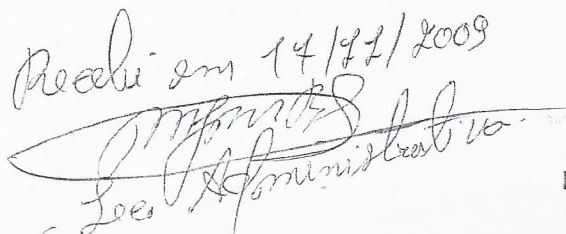 Recebi em 17/11/2009
Sec. Administrativa.